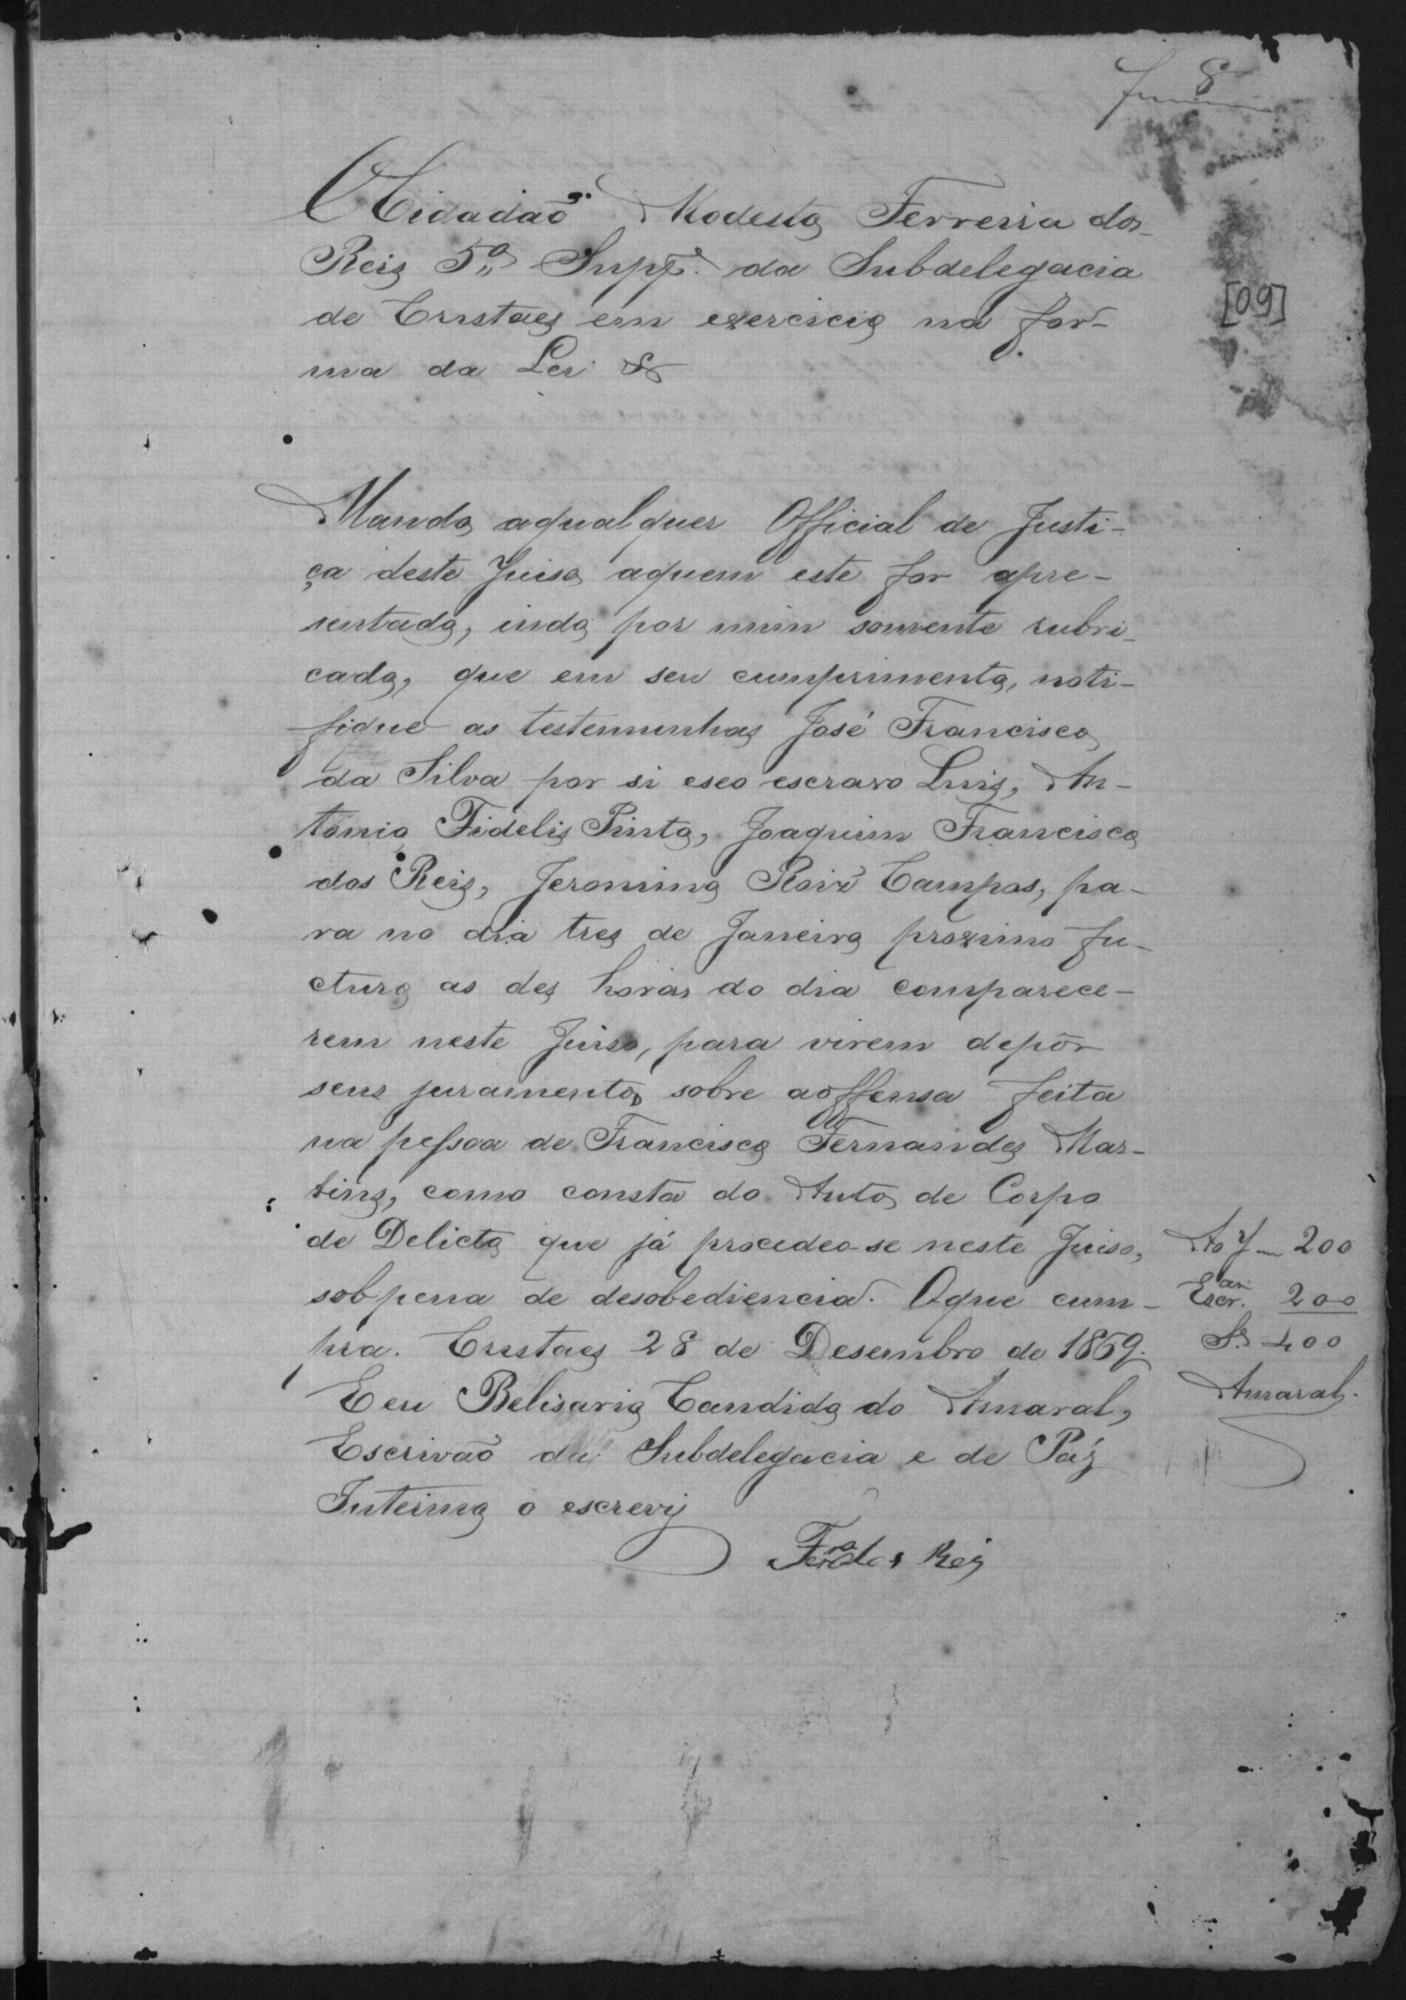 8
O Cidadaõ Modesto Ferreira dos
Reis 5º Suppe. da Subdelegacia
de Cristaes em exercicio na for-
ma da Lei &
[09]
Mando aqualquer Official de Justi-
ça deste Juiso aquem este for apre-
sentado, indo por mim somente rubri-
cado, que em seu cumprimento, noti-
fique as testemunhas José Francisco
da Silva por si eseo escravo Luis, An-
tonio Fidelis Pinto, Joaquim Francisco
dos Reis, Jeronimo Roiz Campos, pa-
ra no dia tres de Janeiro proximo fu-
cturo as des horas do dia comparece-
rem neste Juiso, para virem depôr
seus juramentos sobre aoffensa feita
na pessoa de Francisco Fernandes Mar-
tins, como consta do Auto de Corpo
de Delicto que já procedeo-se neste Juiso,
sobpena de desobediencia. Oque cum-
pra. Cristaes 28 de Desembro de 1869.
Eeu Belisario Candido do Amaral,
Escrivaõ da Subdelegacia e de Páz
Interino o escrevy
Ferra dos Reis
Ao J— 200
Escr.am 200
Sa 400
Amaral.